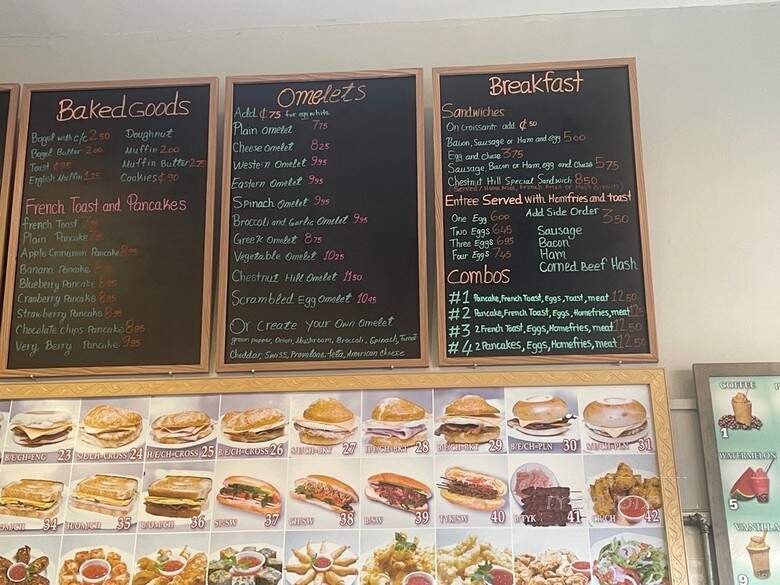 Baked Goods
Bagel with c/c 2.50
Bagel Butter 2.00
Toast
English Muffin 1.25
Doughnut
Muffin 2.00
Muffin Butter 2.75
Cookies ¢.90
French Toast and Pancakes
French Toast
Plain Pancake
Apple Cinnamon Pancake 8.95
Banana Pancake
Blueberry Pancake
Cranberry Pancake 8.95
Strawberry Pancake 8.95
Chocolate chips Pancake 8.95
Very Berry Pancake 9.95
Omelets
Add ¢75 for egg white
Plain omelet 7.75
Cheese omelet 8.25
Western Omelet 9.95
Eastern Omelet 9.95
Spinach Omelet 9.95
Broccoli and Garlic Omelet 9.95
Greek Omelet 8.75
Vegetable Omelet 10.25
Chestnut Hill Omelet 11.50
Scrambled Egg Omelet 10.95
Or Create your Own Omelet
green pepper, Onion, Mushroom, Broccoli, Spinach, Tomato
Cheddar, Swiss, Provolone, feta, American cheese
Breakfast
Sandwiches
On croissant add ¢50
Bacon, Sausage or Ham and egg 5.00
Egg and cheese 3.75
Sausage, Bacon or Ham, egg and cheese 5.75
Chestnut Hill Special Sandwich 8.50
Entree Served with Homfries and toast
One Egg 6.00
Two Eggs 6.45
Three Eggs 6.95
Four Eggs 7.45
Add Side Order 3.50
Sausage
Bacon
Ham
Corned Beef Hash
Combos
#1 Pancake, French Toast, Eggs, Toast, meat 12.50
#2 Pancake, French Toast, Eggs, Homefries, meat 12
#3 2 French Toast, Eggs, Homefries, meat 12.50
#4 2 Pancakes, Eggs, Homefries, meat 12.50
B/E/CH-ENG 23
S/E/CH-CROSS 24
H/E/CH-CROSS 25
B/E/CH-CROSS 26
27
28
B/E/CH-BKT 29
B/E/CH-PLN 30
S/E/CH-PLN 31
34
35
36
SP/SW 37
CH/SW 38
R/SW 39
TYK/SW 40
TYK 41
42
COFFEE
1
WATERMELON
5
VANILLA
9